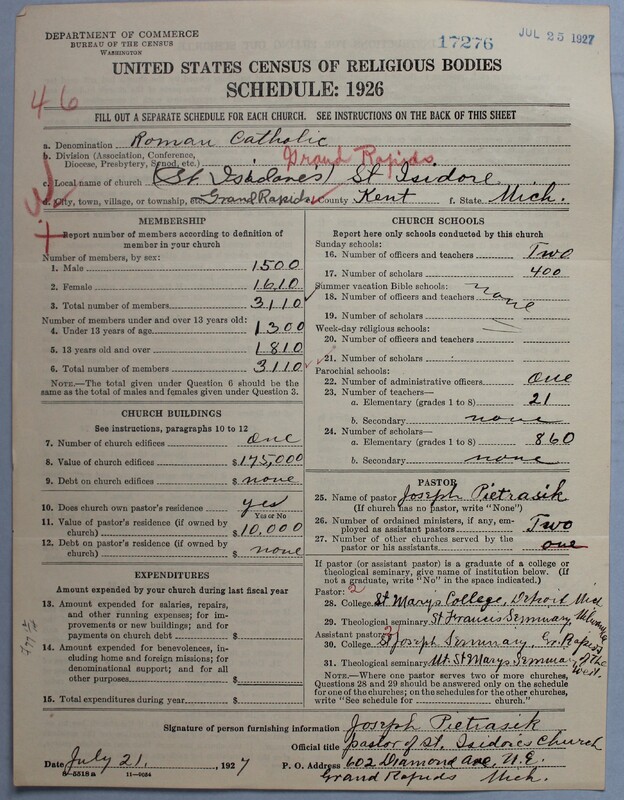 DEPARTMENT OF COMMERCE
BUREAU OF THE CENSUS
WASHINGTON
17276
JUL 25 1927
UNITED STATES CENSUS OF RELIGIOUS BODIES
SCHEDULE: 1926
46
FILL OUT A SEPARATE SCHEDULE FOR EACH CHURCH. SEE INSTRUCTIONS ON THE BACK OF THIS SHEET
a. Denomination Roman Catholic
b. Division (Association, Conference,
Diocese, Presbytery, Synod, etc.) Grand Rapids
c. Local name of church St. Isidore
d. City, town, village, or township, Grand Rapids County Kent f. State Mich.
MEMBERSHIP
Report number of members according to definition of
member in your church
Number of members, by sex:
1. Male 1500
2. Female 1610
3. Total number of members 3110
Number of members under and over 13 years old:
4. Under 13 years of age 1300
5. 13 years old and over 1810
6. Total number of members 3110
NOTE.—The total given under Question 6 should be
the same as the total of males and females given under Question 3.
CHURCH BUILDINGS
See instructions, paragraphs 10 to 12
7. Number of church edifices one
8. Value of church edifices $ 175,000
9. Debt on church edifices $ none
10. Does church own pastor's residence yes
Yes or No
11. Value of pastor's residence (if owned by
church) $ 10,000
12. Debt on pastor's residence (if owned by
church) $ none
EXPENDITURES
Amount expended by your church during last fiscal year
13. Amount expended for salaries, repairs,
and other running expenses; for im-
provements or new buildings; and for
payments on church debt $
14. Amount expended for benevolences, in-
cluding home and foreign missions; for
denominational support; and for all
other purposes $
15. Total expenditures during year $
CHURCH SCHOOLS
Report here only schools conducted by this church
Sunday schools:
16. Number of officers and teachers Two
17. Number of scholars 400
Summer vacation Bible schools:
18. Number of officers and teachers none
19. Number of scholars
Week-day religious schools:
20. Number of officers and teachers
21. Number of scholars
Parochial schools:
22. Number of administrative officers one
23. Number of teachers—
a. Elementary (grades 1 to 8) 21
b. Secondary none
24. Number of scholars—
a. Elementary (grades 1 to 8) 860
b. Secondary none
PASTOR
25. Name of pastor Joseph Pietrasik
(If church has no pastor, write "None")
26. Number of ordained ministers, if any, em-
ployed as assistant pastors Two
27. Number of other churches served by the
pastor or his assistants one
If pastor (or assistant pastor) is a graduate of a college or
theological seminary, give name of institution below. (If
not a graduate, write "No" in the space indicated.)
Pastor: 2
28. College St Mary's College, Detroit Mich
29. Theological seminary St Francis Seminary, Milwaukee
Assistant pastor:
30. College St Joseph Seminary, Gr. Rapids
31. Theological seminary Mt. St Mary's Seminary of the West.
NOTE.—Where one pastor serves two or more churches,
Questions 28 and 29 should be answered only on the schedule
for one of the churches; on the schedules for the other churches,
write "See schedule for church."
Signature of person furnishing information Joseph Pietrasik
Official title pastor of St. Isidore's Church
Date July 21, 1927 P. O. Address 602 Diamond Ave, N.E.
Grand Rapids Mich.
8-5518a 11-9034